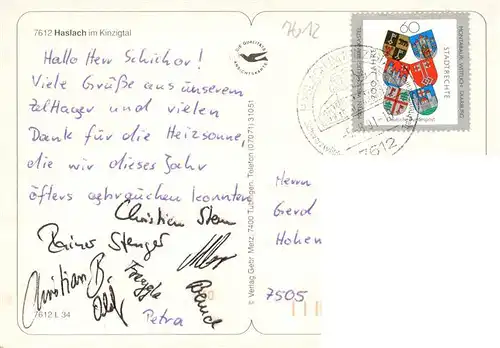 7612 Haslach im Kinzigtal
Hallo Herr Schichor!
Viele Grüße aus unserem
Zeltlager und vielen
Dank für die Heizsonne,
die wir dieses Jahr
öfters gebrauchen konnten.
Christian Stern
Rainer Stenger
Christian B.
Freggle
Petra
7612 L 34
DIE QUALITÄTS
ANSICHTSKARTE
© Verlag Gebr. Metz, 7400 Tübingen, Telefon (07071) 31051
7612
60
700 JAHRE
STADTRECHTE
7612
Herrn
Gerd
Hohen
7505